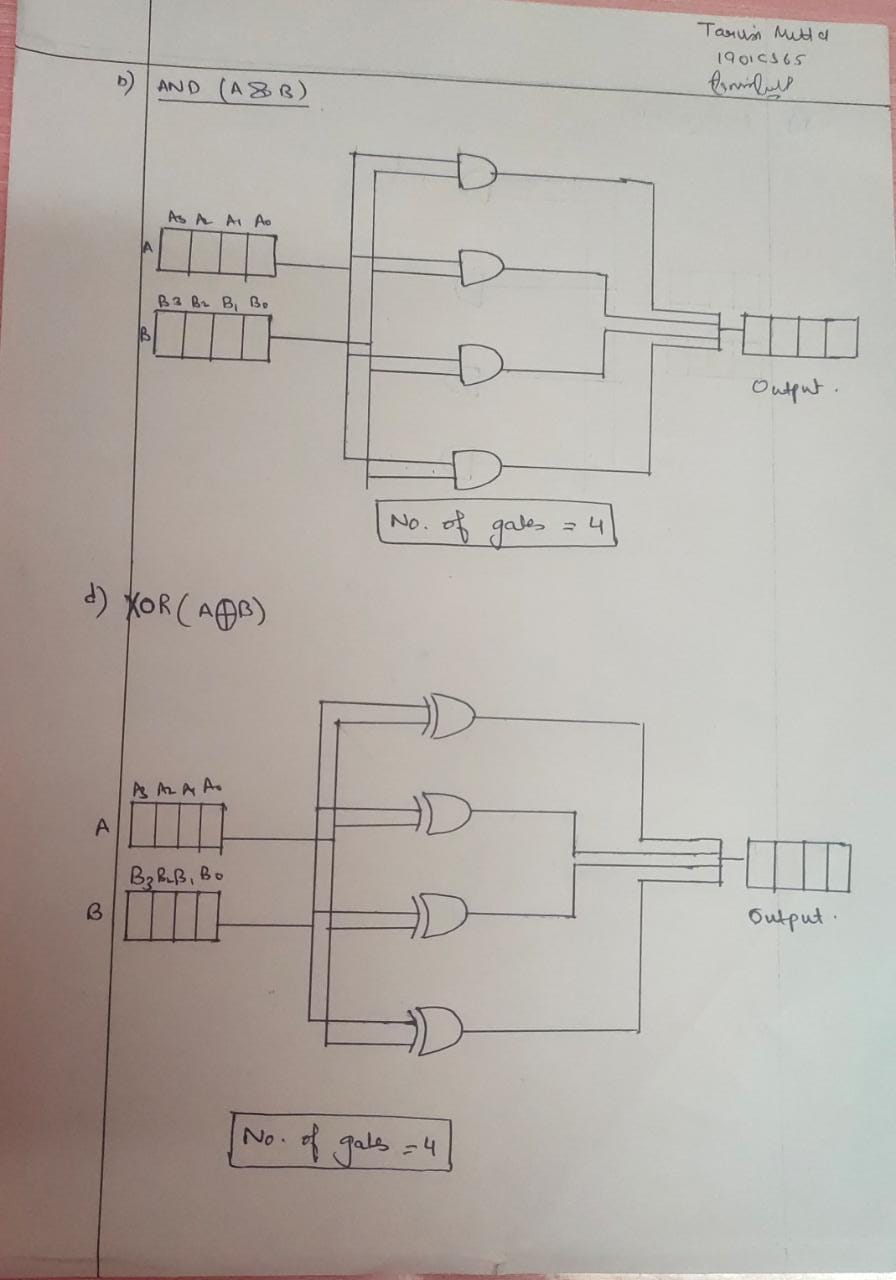 Tarun
1901CS65
b) AND (A & B)
A3 A2 A1 A0
A
B3 B2 B1 B0
B
Output.
No. of gates = 4
d) XOR (A⊕B)
A3 A2 A1 A0
A
B3 B2 B1 B0
B
Output.
No. of gates = 4